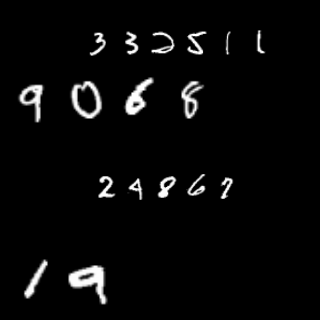 332511
9068
24867
19